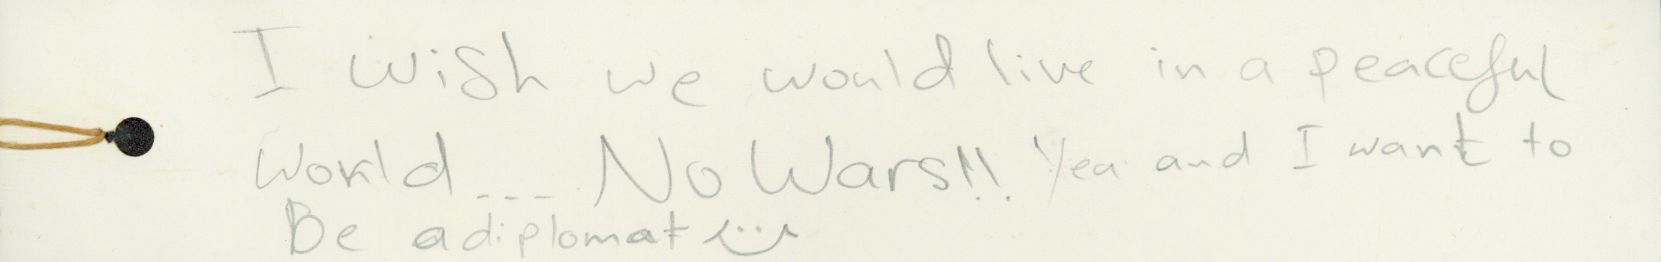 I wish we would live in a peaceful
World --- No Wars!! Yea and I want to
Be a diplomat :)